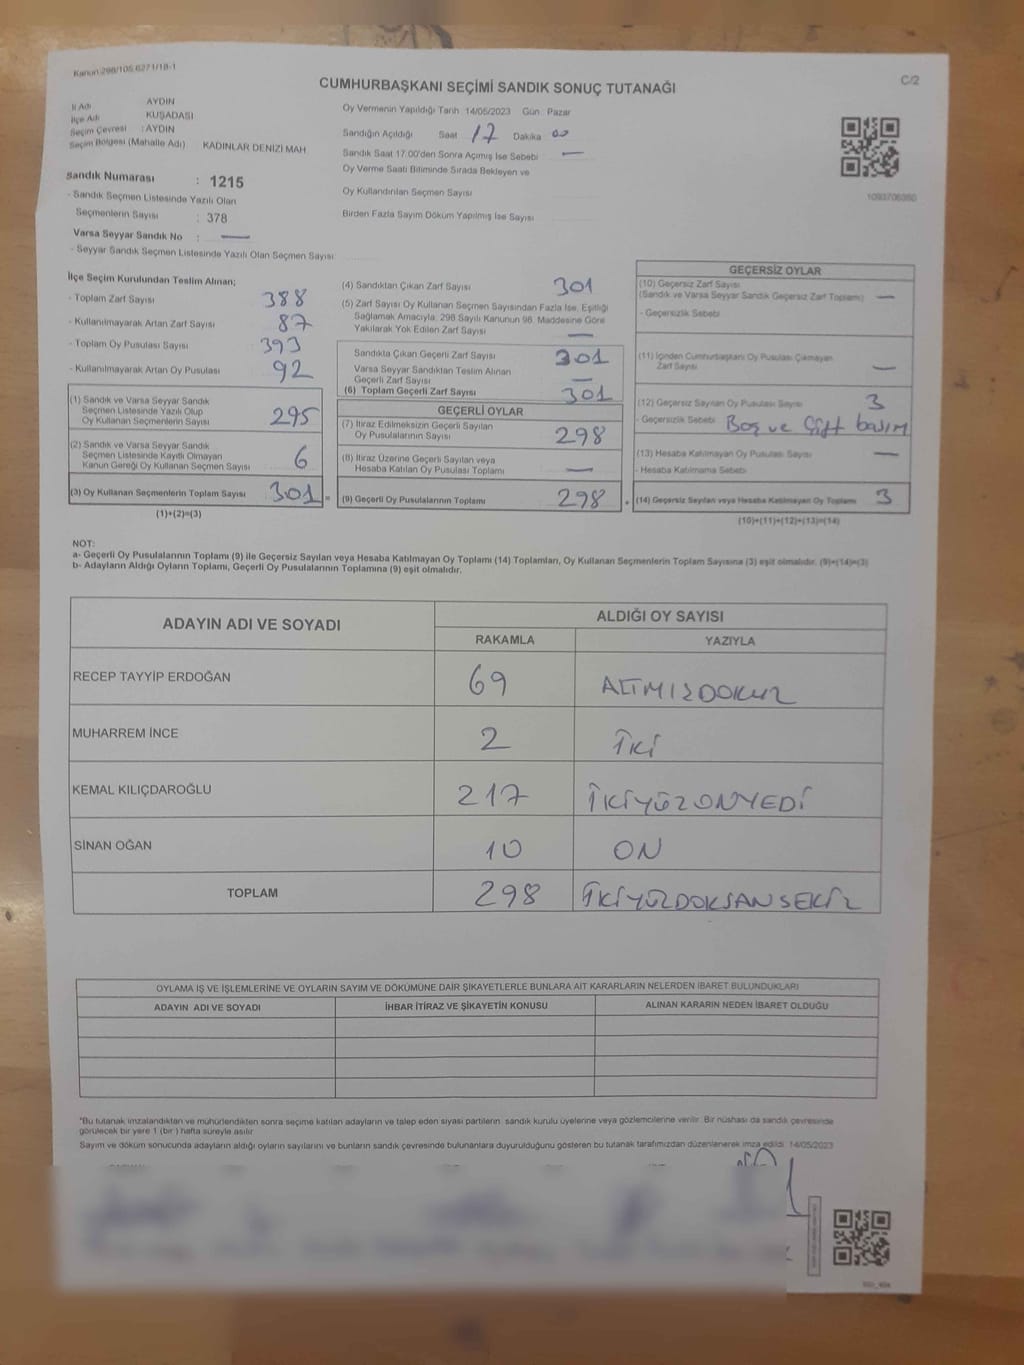 Kanun:298/105,6271/18-1
C/2
CUMHURBAŞKANI SEÇİMİ SANDIK SONUÇ TUTANAĞI
İl Adı AYDIN
İlçe Adı KUŞADASI
Seçim Çevresi : AYDIN
Seçim Bölgesi (Mahalle Adı) KADINLAR DENİZİ MAH
Sandık Numarası : 1215
- Sandık Seçmen Listesinde Yazılı Olan
Seçmenlerin Sayısı : 378
Varsa Seyyar Sandık No : —
- Seyyar Sandık Seçmen Listesinde Yazılı Olan Seçmen Sayısı
Oy Vermenin Yapıldığı Tarih 14/05/2023 Gün Pazar
Sandığın Açıldığı Saat 17 Dakika 00
Sandık Saat 17.00'den Sonra Açımış İse Sebebi —
Oy Verme Saati Bitiminde Sırada Bekleyen ve
Oy Kullandırılan Seçmen Sayısı
Birden Fazla Sayım Döküm Yapılmış İse Sayısı
1093706360
İlçe Seçim Kurulundan Teslim Alınan;
- Toplam Zarf Sayısı 388
- Kullanılmayarak Artan Zarf Sayısı 87
- Toplam Oy Pusulası Sayısı 393
- Kullanılmayarak Artan Oy Pusulası 92
(1) Sandık ve Varsa Seyyar Sandık
Seçmen Listesinde Yazılı Olup
Oy Kullanan Seçmenlerin Sayısı 295
(2) Sandık ve Varsa Seyyar Sandık
Seçmen Listesinde Kayıtlı Olmayan
Kanun Gereği Oy Kullanan Seçmen Sayısı 6
(3) Oy Kullanan Seçmenlerin Toplam Sayısı 301 =
(1)+(2)=(3)
(4) Sandıktan Çıkan Zarf Sayısı 301
(5) Zarf Sayısı Oy Kullanan Seçmen Sayısından Fazla İse, Eşitliği
Sağlamak Amacıyla; 298 Sayılı Kanunun 98. Maddesine Göre
Yakılarak Yok Edilen Zarf Sayısı —
Sandıkta Çıkan Geçerli Zarf Sayısı 301
Varsa Seyyar Sandıktan Teslim Alınan
Geçerli Zarf Sayısı —
(6) Toplam Geçerli Zarf Sayısı 301
GEÇERLİ OYLAR
(7) İtiraz Edilmeksizin Geçerli Sayılan
Oy Pusulalarının Sayısı 298
(8) İtiraz Üzerine Geçerli Sayılan veya
Hesaba Katılan Oy Pusulası Toplamı —
(9) Geçerli Oy Pusulalarının Toplamı 298 +
GEÇERSİZ OYLAR
(10) Geçersiz Zarf Sayısı
(Sandık ve Varsa Seyyar Sandık Geçersiz Zarf Toplamı) —
- Geçersizlik Sebebi
(11) İçinden Cumhurbaşkanı Oy Pusulası Çıkmayan
Zarf Sayısı —
(12) Geçersiz Sayılan Oy Pusulası Sayısı 3
- Geçersizlik Sebebi Boş ve Çift basım
(13) Hesaba Katılmayan Oy Pusulası Sayısı —
- Hesaba Katılmama Sebebi
(14) Geçersiz Sayılan veya Hesaba Katılmayan Oy Toplamı 3
(10)+(11)+(12)+(13)=(14)
NOT:
a- Geçerli Oy Pusulalarının Toplamı (9) ile Geçersiz Sayılan veya Hesaba Katılmayan Oy Toplamı (14) Toplamları, Oy Kullanan Seçmenlerin Toplam Sayısına (3) eşit olmalıdır. (9)+(14)=(3)
b- Adayların Aldığı Oyların Toplamı, Geçerli Oy Pusulalarının Toplamına (9) eşit olmalıdır.
ADAYIN ADI VE SOYADI ALDIĞI OY SAYISI
RAKAMLA YAZIYLA
RECEP TAYYİP ERDOĞAN 69 ALTMIŞDOKUZ
MUHARREM İNCE 2 İKİ
KEMAL KILIÇDAROĞLU 217 İKİYÜZONYEDİ
SİNAN OĞAN 10 ON
TOPLAM 298 İKİYÜZDOKSANSEKİZ
OYLAMA İŞ VE İŞLEMLERİNE VE OYLARIN SAYIM VE DÖKÜMÜNE DAİR ŞİKAYETLERLE BUNLARA AİT KARARLARIN NELERDEN İBARET BULUNDUKLARI
ADAYIN ADI VE SOYADI İHBAR İTİRAZ VE ŞİKAYETİN KONUSU ALINAN KARARIN NEDEN İBARET OLDUĞU
*Bu tutanak imzalandıktan ve mühürlendikten sonra seçime katılan adayların ve talep eden siyasi partilerin sandık kurulu üyelerine veya gözlemcilerine verilir. Bir nüshası da sandık çevresinde
görülecek bir yere 1 (bir ) hafta süreyle asılır.
Sayım ve döküm sonucunda adayların aldığı oyların sayılarını ve bunların sandık çevresinde bulunanlara duyurulduğunu gösteren bu tutanak tarafımızdan düzenlenerek imza edildi. 14/05/2023